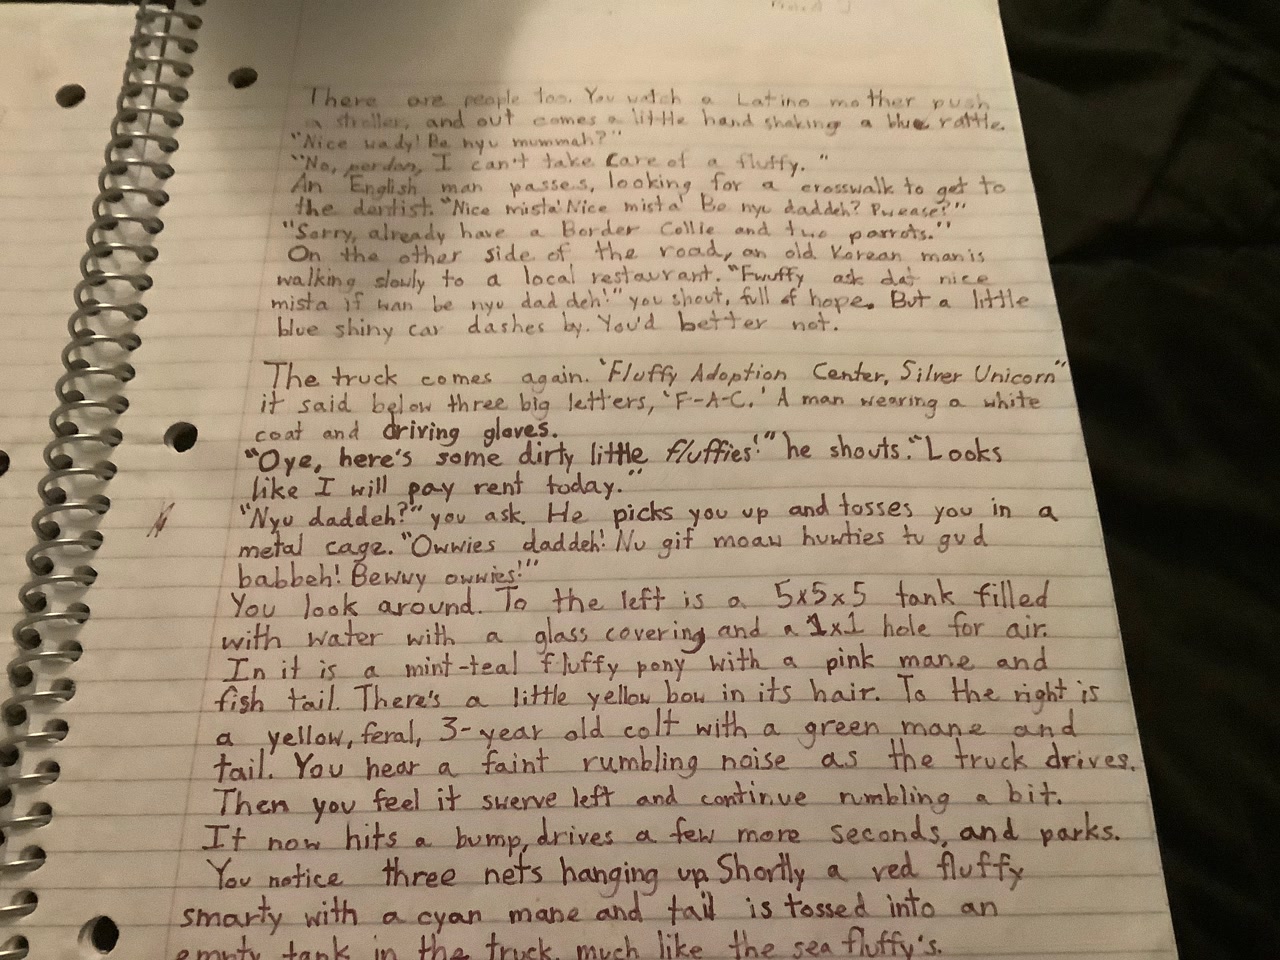 There are people too. You watch a Latino mother push
a stroller, and out comes a little hand shaking a blue rattle.
"Nice wady! Be nyu mummah?"
"No, perdon, I can't take care of a fluffy."
An English man passes, looking for a crosswalk to get to
the dentist. "Nice mista! Nice mista! Be nyu daddeh? Pwease?"
"Sorry, already have a Border Collie and two parrots."
On the other side of the road, an old Korean man is
walking slowly to a local restaurant. "Fwuffy ask dat nice
mista if wan be nyu dad deh!" you shout, full of hope. But a little
blue shiny car dashes by. You'd better not.
The truck comes again. "Fluffy Adoption Center, Silver Unicorn"
it said below three big letters, 'F-A-C.' A man wearing a white
coat and driving gloves.
"Oye, here's some dirty little fluffies!" he shouts. "Looks
like I will pay rent today."
"Nyu daddeh?" you ask. He picks you up and tosses you in a
metal cage. "Owwies daddeh! Nu gif moaw huwties tu gud
babbeh! Bewwy owwies!"
You look around. To the left is a 5x5x5 tank filled
with water with a glass covering and a 1x1 hole for air.
In it is a mint-teal fluffy pony with a pink mane and
fish tail. There's a little yellow bow in its hair. To the right is
a yellow, feral, 3-year old colt with a green mane and
tail. You hear a faint rumbling noise as the truck drives.
Then you feel it swerve left and continue rumbling a bit.
It now hits a bump, drives a few more seconds, and parks.
You notice three nets hanging up. Shortly a red fluffy
smarty with a cyan mane and tail is tossed into an
empty tank in the truck, much like the sea fluffy's.